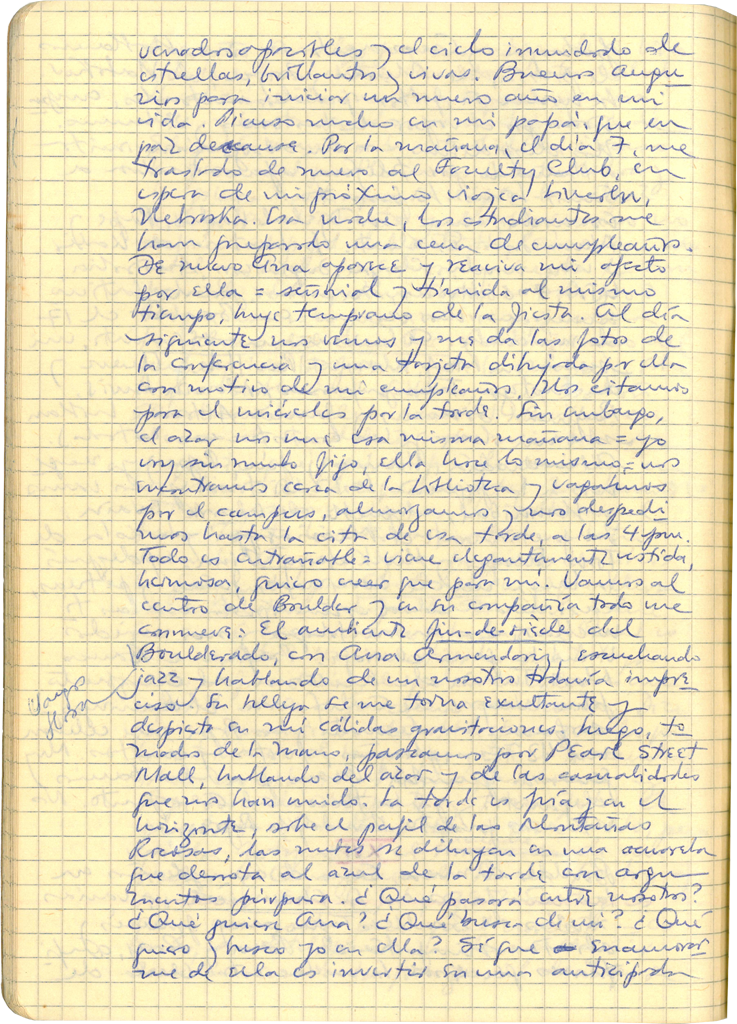 venados apacibles y el cielo inundado de
estrellas, brillantes y vivas. Buenos augu
rios para iniciar un nuevo año en mi
vida. Pienso mucho en mi papá, que en
paz descanse. Por la mañana, el día 7, me
traslado de nuevo al Faculty Club, en
espera de mi próximo viaje a Lincoln,
Nebraska. Esa noche, los estudiantes me
han preparado una cena de cumpleaños.
De nuevo Ana aparece y reaviva mi afecto
por ella = señorial y tímida al mismo
tiempo, huye temprano de la fiesta. Al día
siguiente nos vemos y me da las fotos de
la conferencia y una tarjeta dibujada por ella
con motivo de mi cumpleaños. Nos citamos
para el miércoles por la tarde. Sin embargo,
el azar nos une esa misma mañana = yo
voy sin rumbo fijo, ella hace lo mismo = nos
encontramos cerca de la biblioteca y vagamos
por el campus, almorzamos y nos despedi
mos hasta la cita de esa tarde, a las 4 pm.
Todo es entrañable = viene elegantemente vestida,
hermosa, quiero creer que para mí. Vamos al
centro de Boulder y en su compañía todo me
conmueve: El ambiente fin-de-siècle del
Boulderado, con Ana Armendariz, escuchando
jazz y hablando de un nosotros todavía impre
ciso. Su belleza se me torna exultante y
despierta en mí cálidas gravitaciones. Luego, to
mados de la mano, paseamos por Pearl Street
Mall, hablando del azar y de las casualidades
que nos han unido. La tarde es fría y en el
horizonte, sobre el perfil de las Montañas
Rocosas, las nubes se dibujan en una acuarela
que derrota al azul de la tarde con argu
mentos púrpura. ¿Qué pasará entre nosotros?
¿Qué quiere Ana? ¿Qué busca de mí? ¿Qué
quiero y busco yo en ella? Sí que enamorar
me de ella es invertir en una anticipada